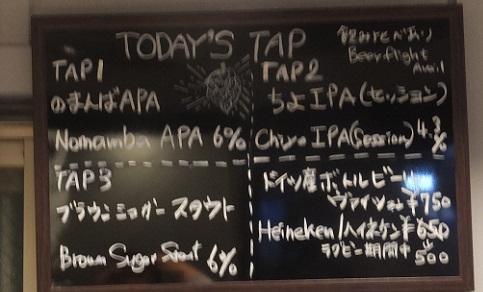 TODAY'S TAP
飲みくらべあり
Beer flight
Avail
TAP1
のまんばAPA
Nomamba APA 6%
TAP2
ちよIPA(セッション)
Chiyo IPA(Session) 4.3%
TAP3
ブラウンシュガースタウト
Brown Sugar Stout 6%
ドイツ産ボトルビール
ヴァイツェン ¥750
Heineken/ハイネケン ¥650
ラグビー期間中 ↓500